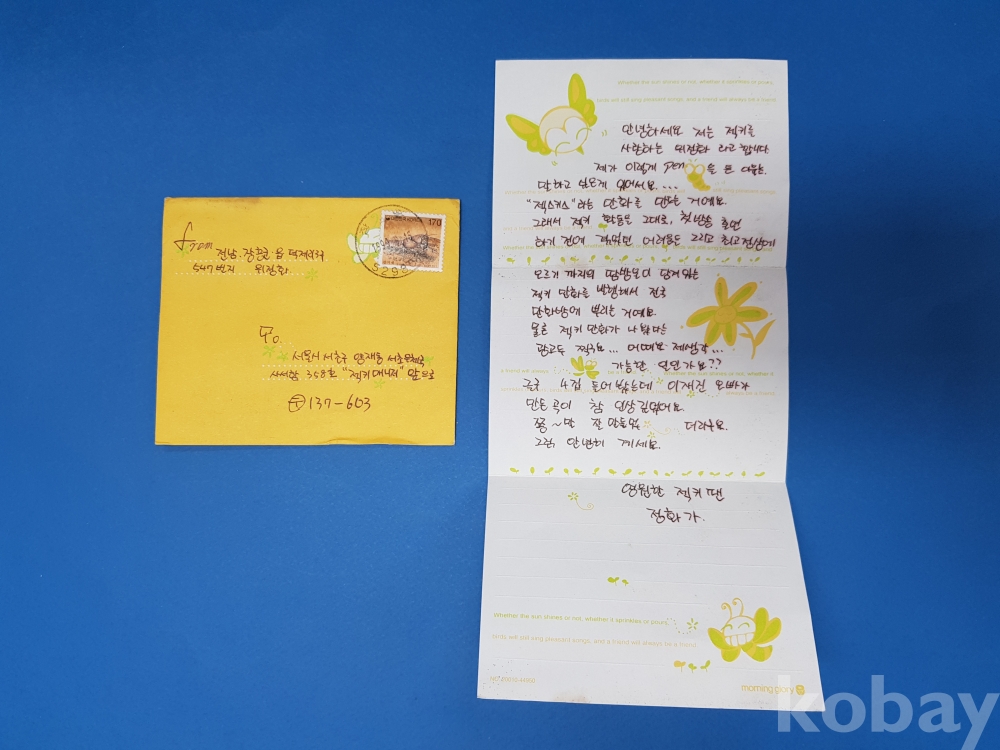 from
전남. 장흥군
547번지 위정화
170
529
To.
서울시 서초구 양재동 서초우체국
사서함 358호 "젝키매니저" 앞으로
㉾ 137-603
Whether the sun shines or not, whether it sprinkles or pours,
birds will still sing pleasant songs, and a friend will always be a friend
안녕하세요 저는 젝키를
사랑하는 위정화 라고 합니다.
제가 이렇게 pen을 든 이유는.
말하고 싶은게 있어서요....
"젝스키스"라는 만화를 만드는 거예요.
그래서 젝키 활동은 그대로, 첫방송 출연
하기 전에 어려움도 그리고 최고정상에
오르기 까지의 땀방울이 담겨있는
젝키 만화를 발행해서 전국
만화방에 뿌리는 거예요.
물론 젝키 만화가 나왔다는
광고도 찍구요... 어때요 제생각...
가능한 일인가요??
4집 들어 봤는데 이재진 오빠가
만든곡이 참 인상깊었어요.
쫑~말 잘 만들었 더라구요.
그럼, 안녕히 계세요.
영원한 젝키팬
정화가.
Whether the sun shines or not, whether it sprinkles or pours,
birds will still sing pleasant songs, and a friend will always be a friend
morning glory
kobay